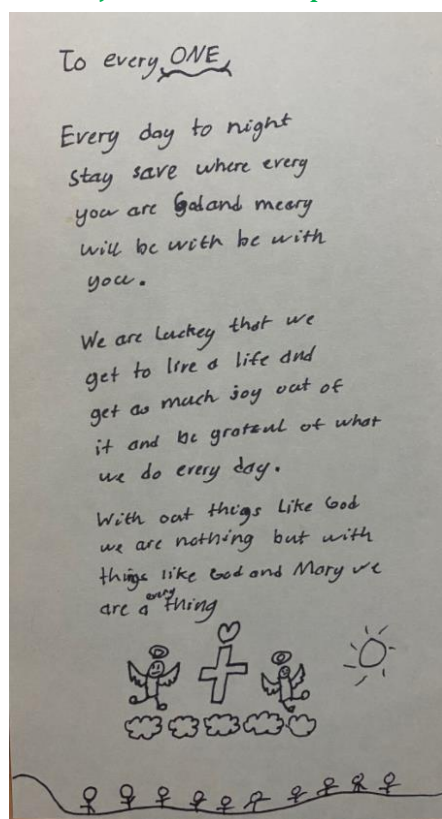 To every ONE
Every day to night
stay save where every
you are God and meary
will be with be with
you.
We are luckey that we
get to live a life and
get as much joy out of
it and be grateul of what
we do every day.
With out things like God
we are nothing but with
things like God and Mary we
are a every thing